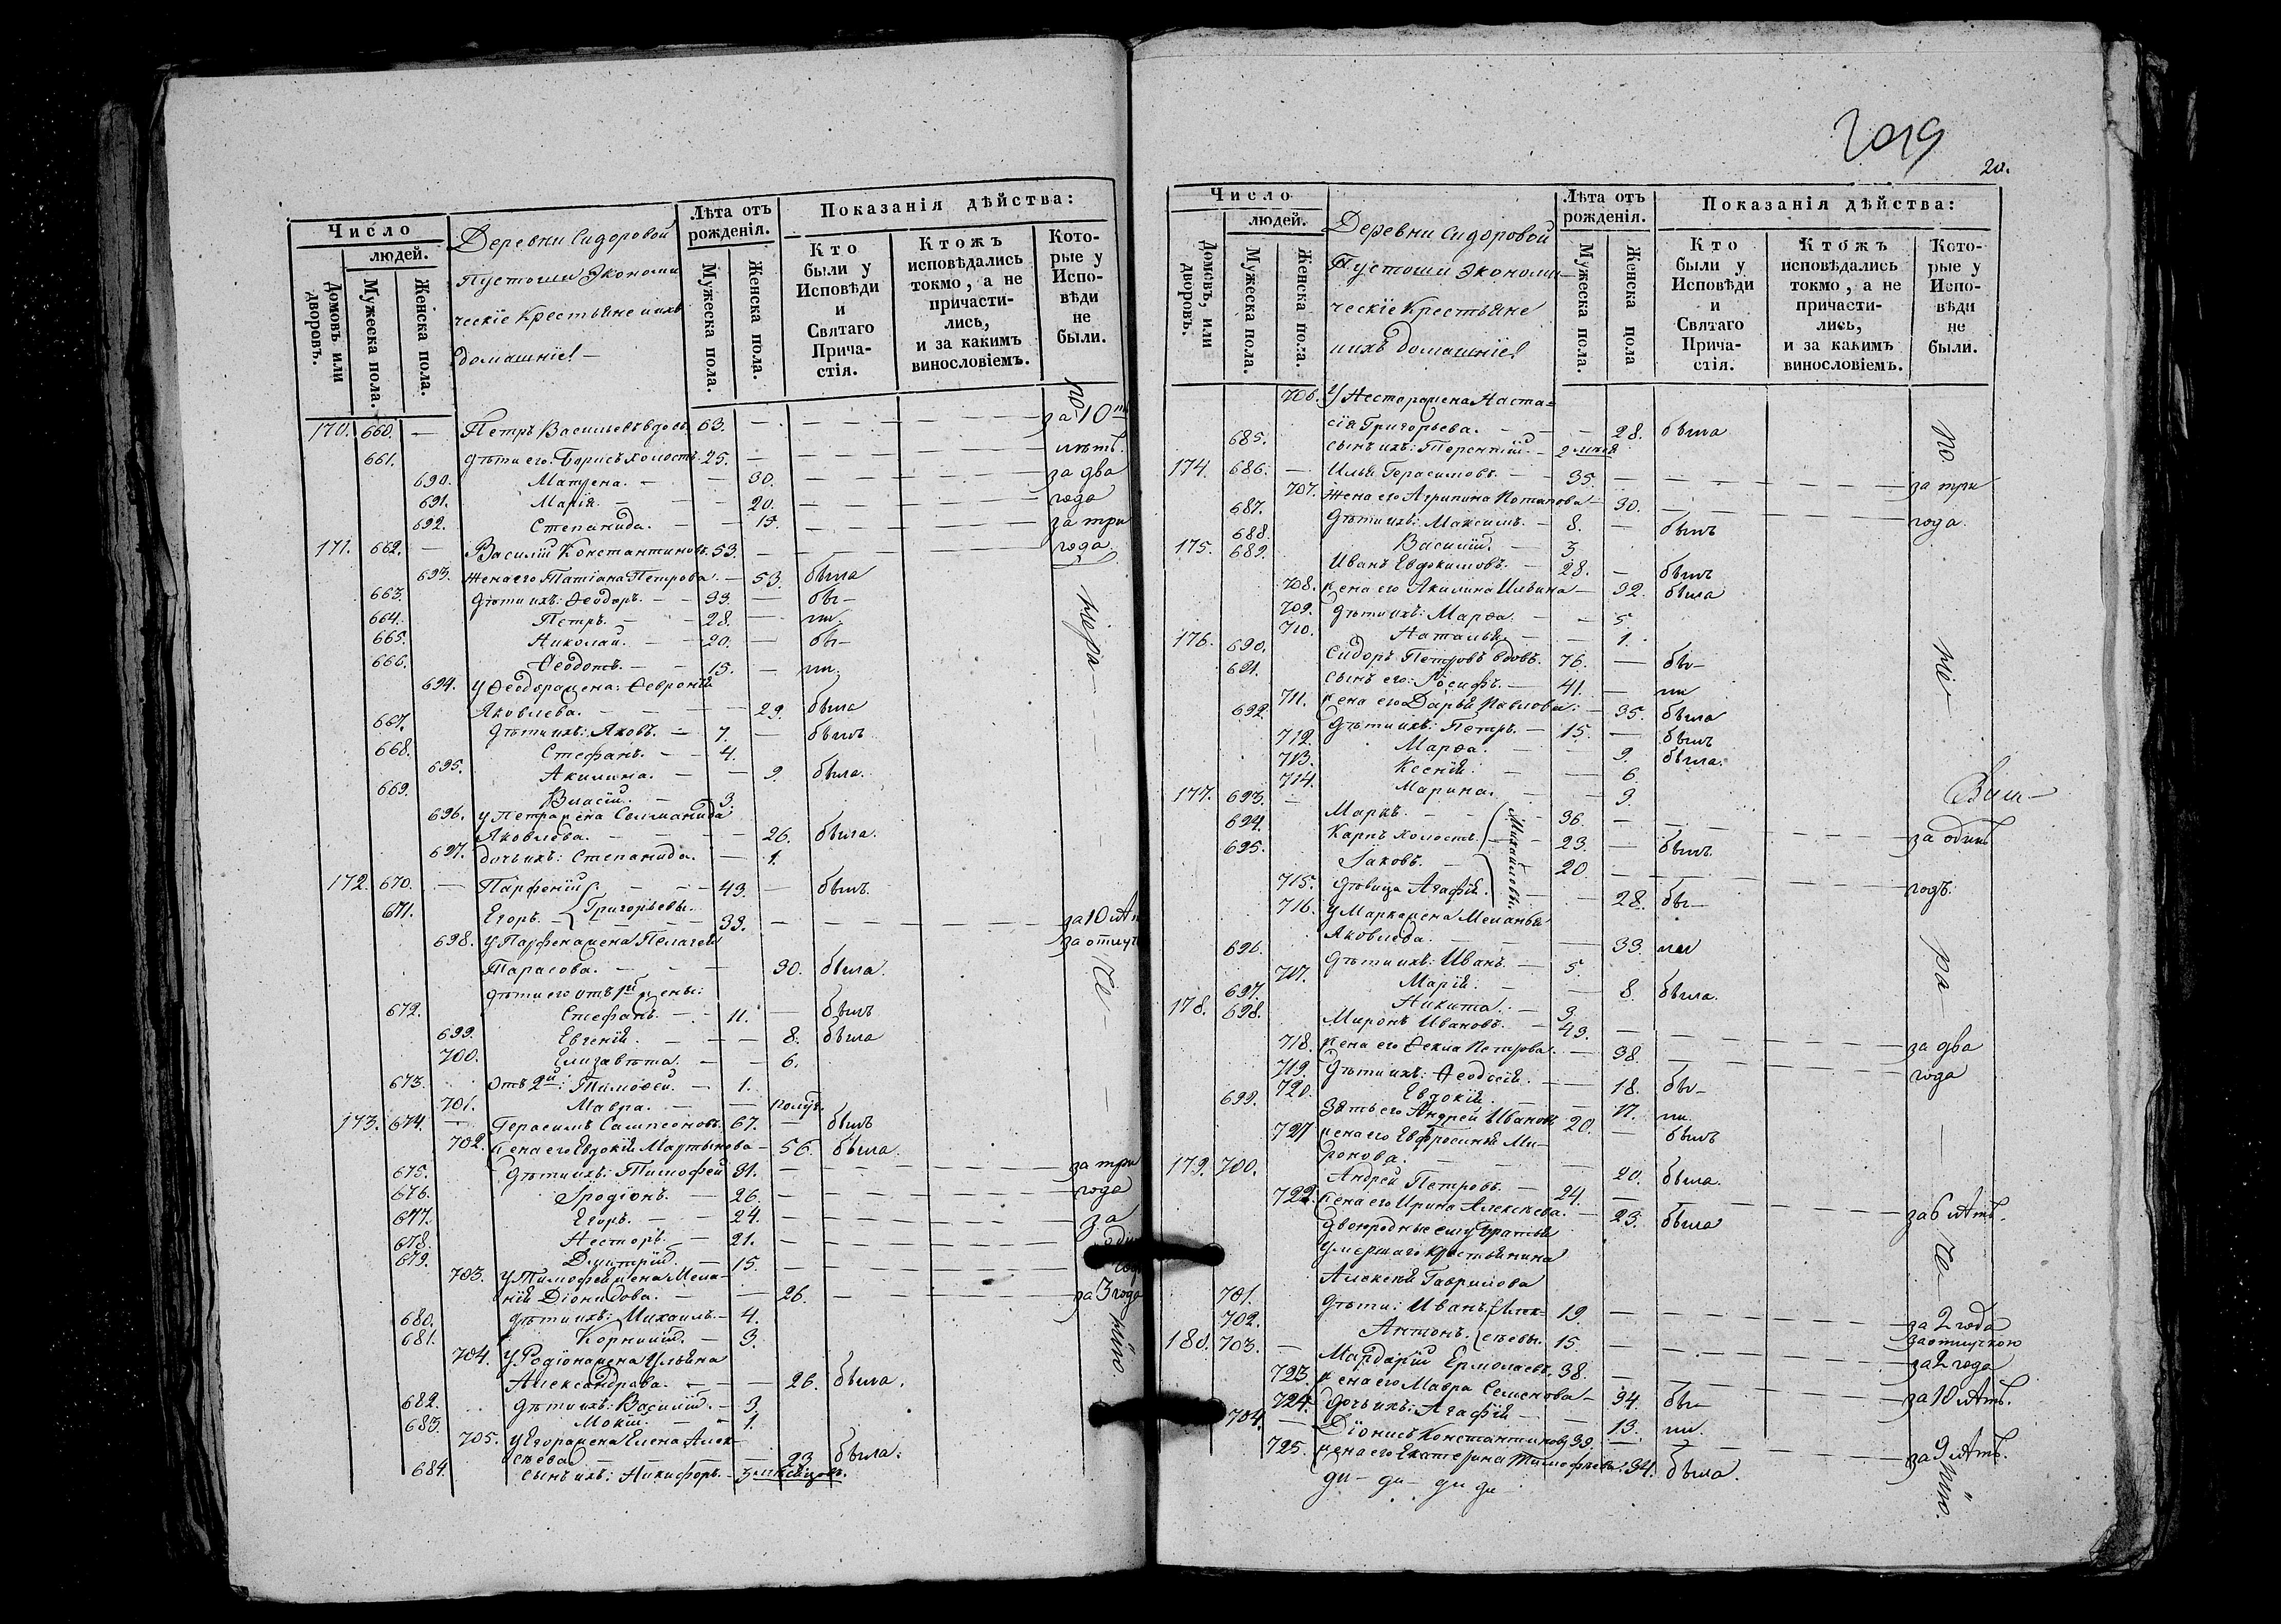 Число
людей.
Домовъ или дворовъ.
Мужеска пола.
Женска пола.
Деревни Сидоровой
Пустоши Экономи
ческіе Крестьяне ихъ
домашніе! —
Лѣта отъ рожденія.
Мужеска пола.
Женска пола.
Показанія дѣйства:
Кто были у Исповѣди и Святаго Прича-стія.
Ктожъ исповѣдались токмо, а не причасти-лись, и за какимъ винословіемъ.
Кото-рые у Испо-вѣди не были.
170. 660. — Петръ Васильевъ вдовъ. 63. — за 10ть
661. дѣти его: Борисъ холостъ. 25. — лѣтъ.
690. Матрена. — 30. — за два
691. Марія. — 20. — года
692. Степанида. — 15. — за три
171. 662. — Василій Константиновъ. 53. — года
693. жена его Татіана Петрова. — 53. была
663. дѣти ихъ: Ѳеодоръ. — 33. — бы-
664. Петръ. — 28. — ли.
665. Николай. — 20. — бы-
666. Ѳеодотъ. — 15. — ли.
694. у Ѳеодора жена: Ѳевронія
Яковлева. — 29. была
667. дѣти ихъ: Яковъ. — 7. — былъ
668. Стефанъ. — 4.
695. Акилина. — 9. была.
669. Власій. — 3.
696. у Петра жена Соломанида
Яковлева. — 26. была.
697. дочь ихъ: Степанида. — 1.
172. 670. — Парфеній — 43. — былъ
Григорьевы.
671. Егоръ. — 33. — за 10 лѣт
698. у Парфена жена Пелагея за отлуч
Тарасова. — 30. была.
дѣти его отъ 1й жены:
672. Стефанъ. — 11. — былъ
699. Евгенія. — 8. была
700. Елизавѣта. — 6.
673. Отъ 2й: Тимоѳей. — 1.
701. Мавра. — полуг.
173. 674. — Герасимъ Сампсоновъ. 67. — былъ
702. жена его Евдокія Мартынова — 56. была.
675. дѣти ихъ: Тимофей 31. — за три
676. Іродіонъ. — 26. — года
677. Егоръ. — 24. — за
678. Несторъ. — 21. —
679. Димитрій. — 15. —
703. у Тимофея жена Мела-
нія Діонидова. — 26. — за 3 года
680. дѣти ихъ: Михаилъ. — 4.
681. Корнилій. — 3.
704. У Родіона жена Ульяна
Александрова. — 26. была.
682. дѣти ихъ: Василій. — 3.
683. Мокій. — 1.
705. у Егора жена Елена Алек-
сѣева. — 23 была.
684. сынъ ихъ: Никифоръ. — 3 мѣсяцовъ.
2019
20.
Число
людей.
Домовъ, или дворовъ.
Мужеска пола.
Женска пола.
Деревни Сидоровой
Пустоши Экономи-
ческіе Крестьяне
ихъ домашніе!
Лѣта отъ рожденія.
Мужеска пола.
Женска пола
Показанія дѣйства:
Кто были у Исповѣди и Святаго Прича-стія.
Ктожъ исповѣдались токмо, а не причасти-лись, и за какимъ винословіемъ.
Кото-рые у Испо-вѣди не были.
706. У Нестора жена Наста=
сія Григорьева. — 28. была
685. сынъ ихъ: Терентій. —
174. 686. — Илья Герасимовъ. — 35. — за три
707. жена его Агрипина Потапова — 30. — года.
687. дѣти ихъ: Максимъ. — 8. — былъ
688. Василій. — 3
175. 689. Иванъ Евдокимовъ. — 28. — былъ
708. жена его Акилина Ильина — 32. была
709. дѣти ихъ: Марѳа. — 5.
710. Наталья. — 1.
176. 690. Сидоръ Петровъ вдовъ. 76. — бы-
691. сынъ его: Іосифъ. — 41. — ли
711. жена его Дарья Павлова. — 35. была
692. дѣти ихъ: Петръ. — 15. — былъ
712. Марѳа. — 9. была.
713. Ксенія. — 6.
714. Марина. — 3.
177. 693. — Маркъ. — 36. — за одинъ
694. Карпъ холостъ. — 23. — былъ
Михайловы.
695. Іаковъ. — 20 — годъ.
715. дѣвица Агафія. — 28. бы-
716. у Марка жена Меланья
Яковлева. — 33. ли
696. дѣти ихъ: Иванъ. — 5.
717. Марія. — 8. была.
697. Никита. — 3
178. 698. Миронъ Ивановъ. — 43. — за два
718. жена его Ѳекла Петрова. — 38. — года
719. дѣти ихъ: Ѳеодосія. — 18. бы-
720. Евдокія. — 17. ли.
699. Зять его Андрей Ивановъ 20. — былъ
721 жена его Евфросинія Ми-
ронова. — 20. была.
179. 700. Андрей Петровъ. — 24. — за 6 лѣтъ.
722. жена его Ирина Алексѣева. — 23. была
Двоюродные ему братья
Умершаго крестьянина
Алексѣя Гаврилова
701. дѣти: Иванъ. Алек- 19. — за 2 года
702. Антонъ. сѣевы. 15. — за отлучкою
180. 703. — Мардарій Ермолаевъ. 38. — за 2 года
723. жена его Мавра Семенова — 34. бы-
724. дочь ихъ: Агафія — 13. ли. за 10 лѣтъ.
704. — Діонисъ Константиновъ 39. — за 9 лѣтъ.
725. жена его Екатерина Тимофѣева. 34. была.